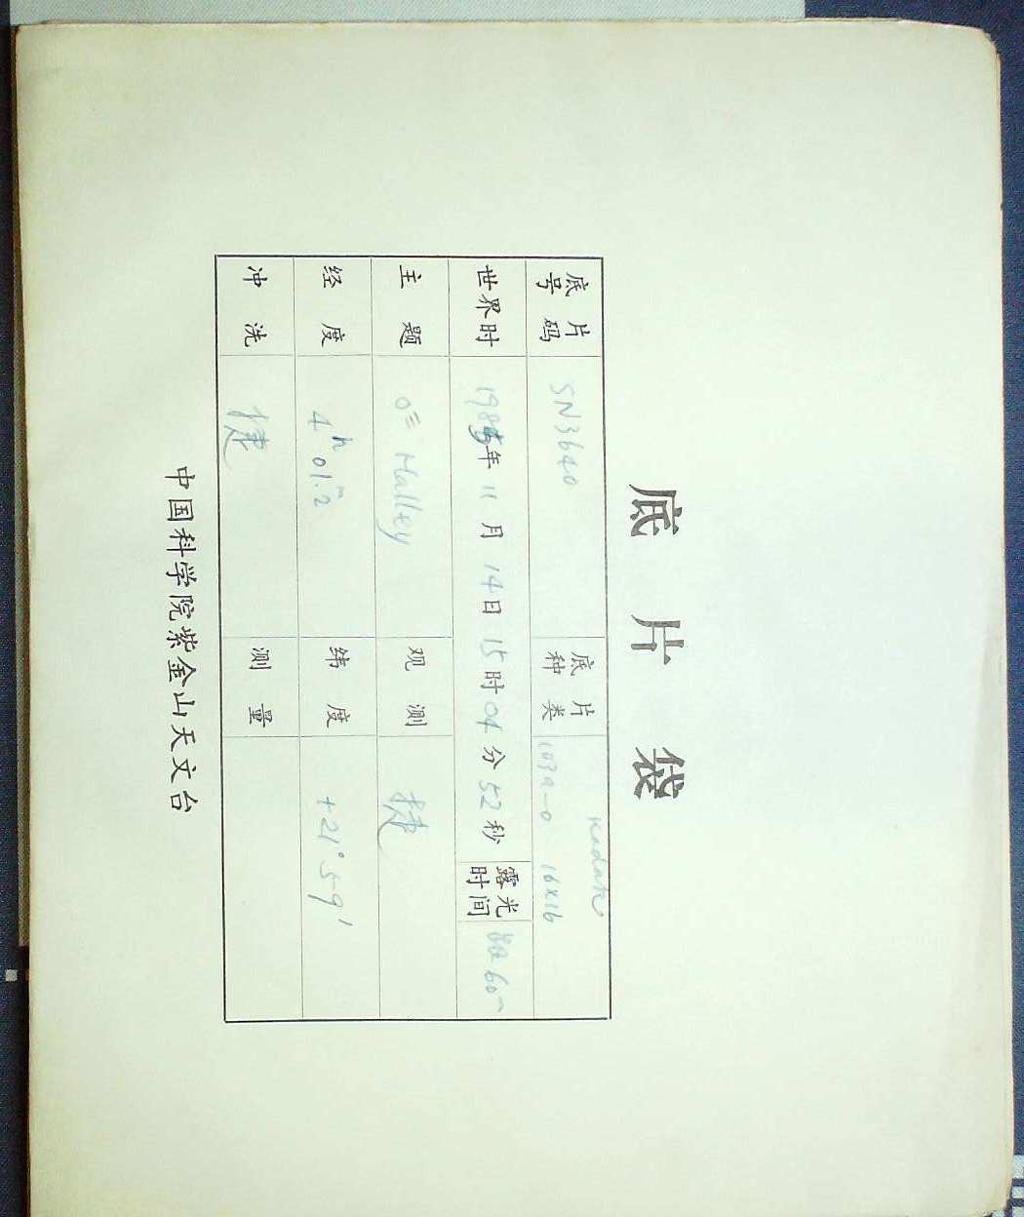 底片袋
底片号码 SN3640 底片种类 103a-0 16x16
世界时 1985年11月14日15时04分52秒 露光时间 60
主题 Halley 观测
经度 4h01m.2 纬度 +21°59'
冲洗 测量
中国科学院紫金山天文台